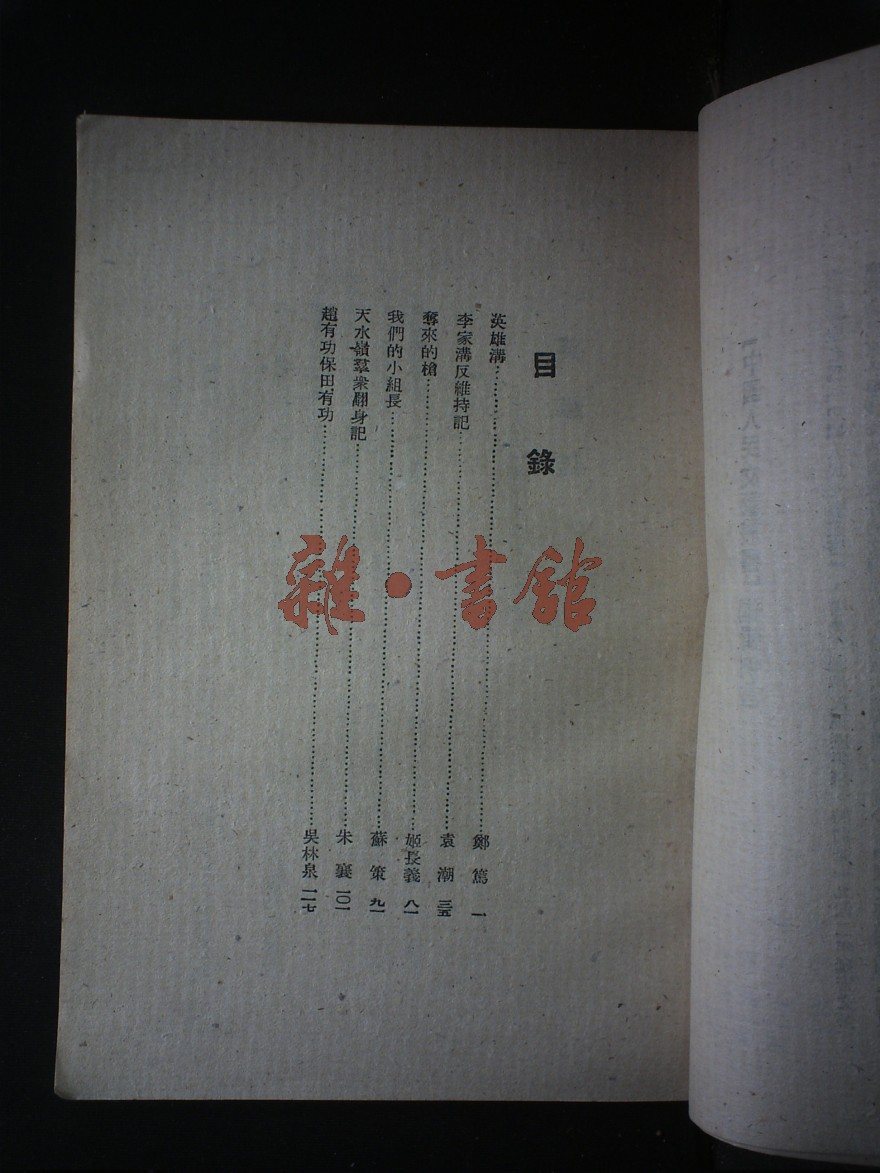 目錄
英雄溝……鄭篤 一
李家溝反維持記……袁潮 三五
奪來的槍……姬長義 八一
我們的小組長……蘇策 九一
天水嶺羣衆翻身記……朱襄 一〇一
趙有功保田有功……吳林泉 一一七
雜·書館